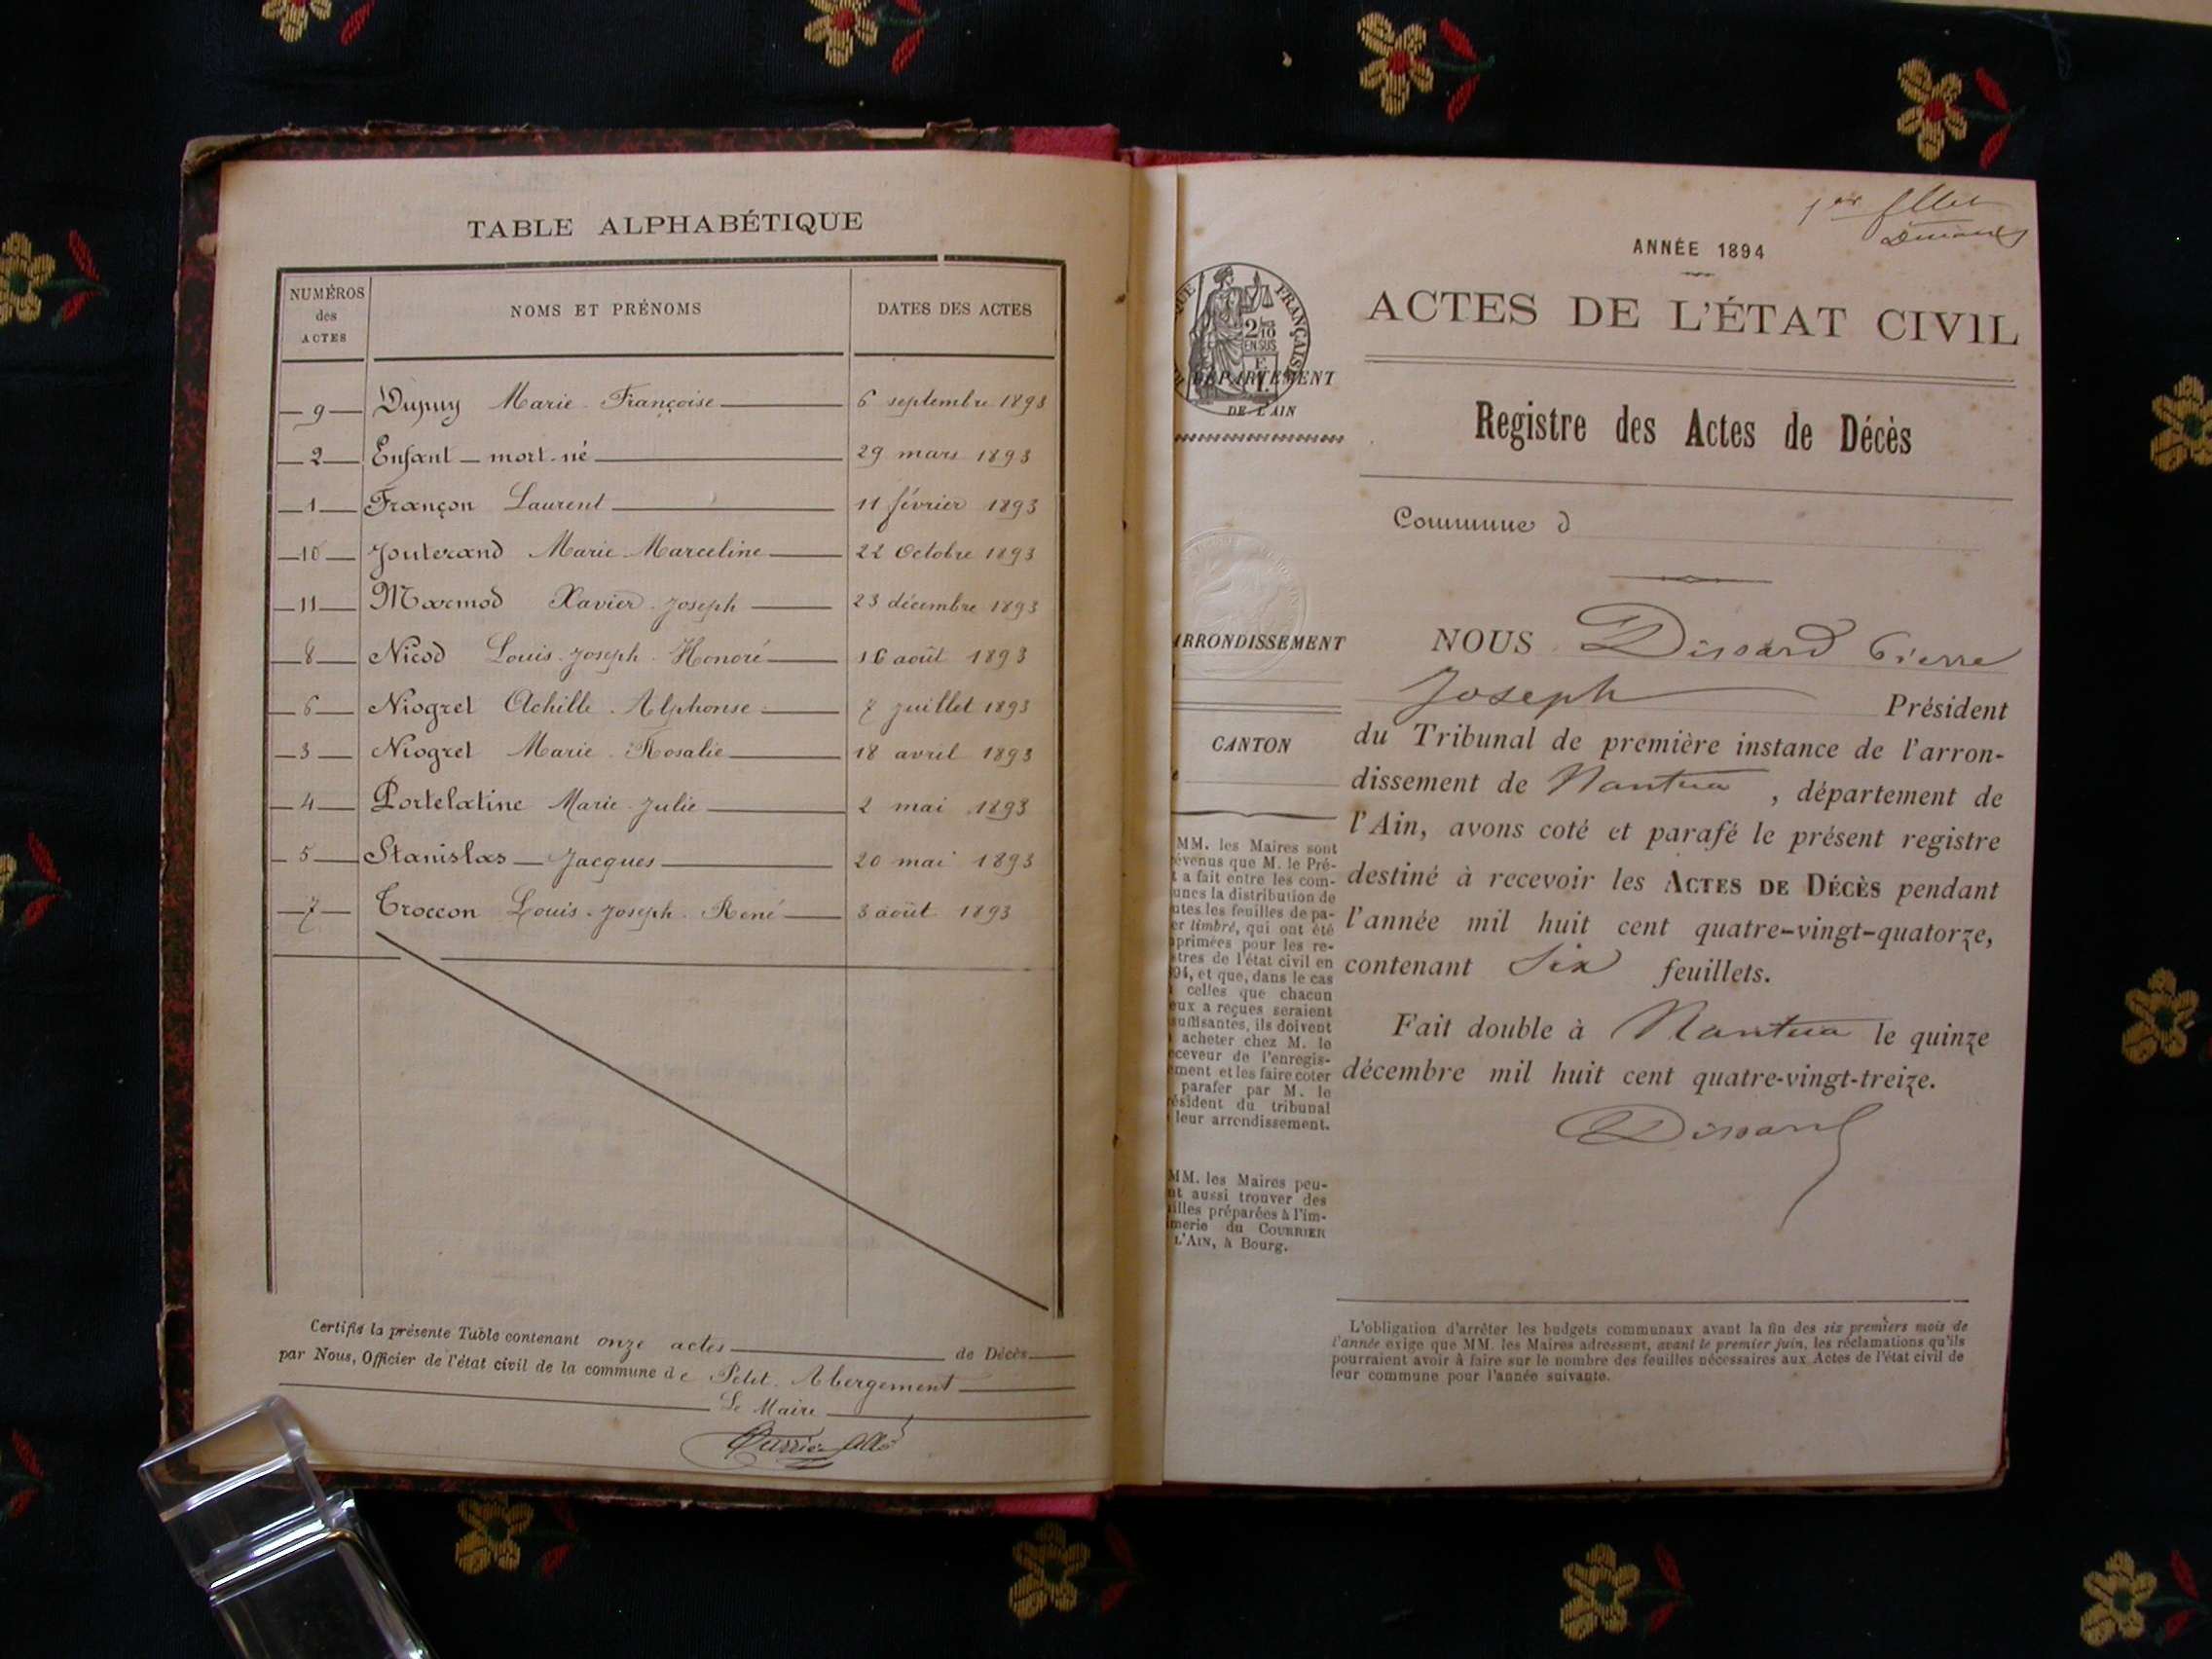 TABLE ALPHABÉTIQUE
NUMÉROS des ACTES NOMS ET PRÉNOMS DATES DES ACTES
9 Dupuy Marie Françoise 6 septembre 1893
2 Enfant mort-né 29 mars 1893
1 Françon Laurent 11 février 1893
10 Jouterand Marie-Marceline 22 Octobre 1893
11 Marmod Xavier-Joseph 23 décembre 1893
8 Nicod Louis-Joseph-Honoré 16 août 1893
6 Niogret Achille-Alphonse 7 Juillet 1893
3 Niogret Marie-Rosalie 18 avril 1893
4 Portelatine Marie-Julie 2 mai 1893
5 Stanislas Jacques 20 mai 1893
7 Troccon Louis-Joseph-René 3 août 1893
Certifié la présente Table contenant onze actes de Décès
par Nous, Officier de l'état civil de la commune de Petit Abergement
Le Maire
1er
ANNÉE 1894
ACTES DE L'ÉTAT CIVIL
FRANÇAISE
2/10
EN SUS
DÉPARTEMENT
DE L'AIN
Registre des Actes de Décès
Commune d
ARRONDISSEMENT
CANTON
NOUS Dissard Pierre
Joseph Président
du Tribunal de première instance de l'arron-
dissement de Nantua, département de
l'Ain, avons coté et parafé le présent registre
destiné à recevoir les ACTES DE DÉCÈS pendant
l'année mil huit cent quatre-vingt-quatorze,
contenant Six feuillets.
Fait double à Nantua le quinze
décembre mil huit cent quatre-vingt-treize.
Dissard
MM. les Maires sont
évenus que M. le Pré-
t a fait entre les com-
unes la distribution de
utes les feuilles de pa-
er timbré, qui ont été
primées pour les re-
stres de l'état civil en
94, et que, dans le cas
celles que chacun
eux a reçues seraient
suffisantes, ils doivent
acheter chez M. le
ceveur de l'enregis-
ement et les faire coter
parafer par M. le
ésident du tribunal
leur arrondissement.
MM. les Maires peu-
nt aussi trouver des
illes préparées à l'im-
merie du COURRIER
L'AIN, à Bourg.
L'obligation d'arrêter les budgets communaux avant la fin des six premiers mois de
l'année exige que MM. les Maires adressent, avant le premier juin, les réclamations qu'ils
pourraient avoir à faire sur le nombre des feuilles nécessaires aux Actes de l'état civil de
leur commune pour l'année suivante.